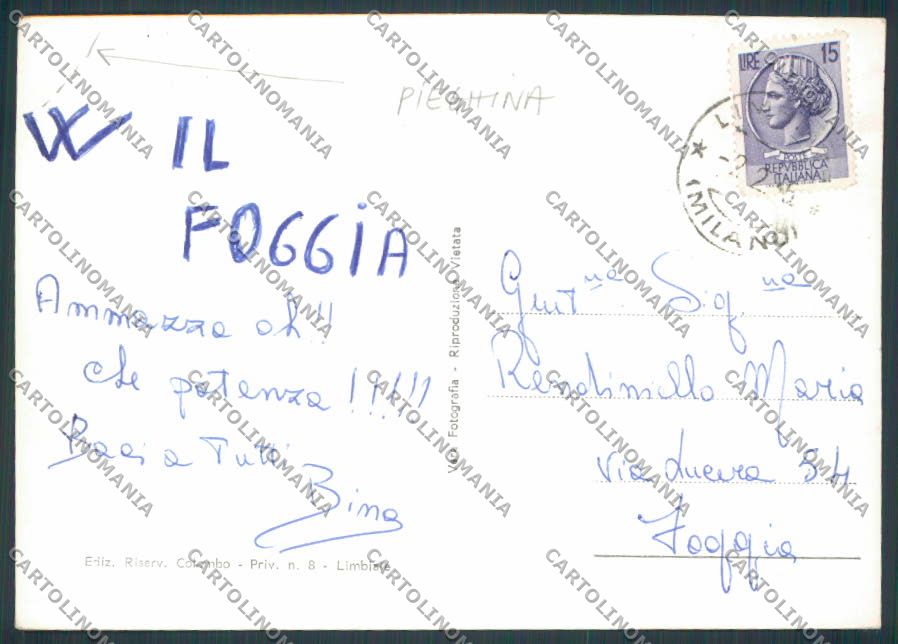 PIEGHINA
W IL
FOGGIA
Ammazza oh!!
che potenza !!!!!!
Baci a Tutti
Bina
Ediz. Riserv. Colombo - Priv. n. 8 - Limbiate
Vera Fotografia - Riproduzione Vietata
LIRE 15
POSTE
REPVBBLICA
ITALIANA
(MILANO)
Gent.na Sig.na
Rendinello Maria
Via Lucera 34
Foggia
CARTOLINOMANIA